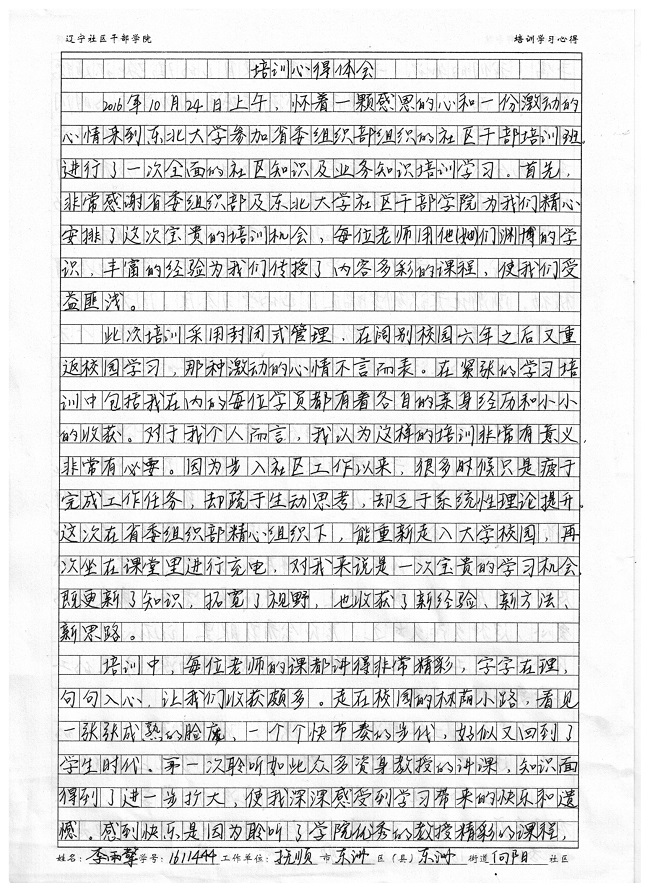 辽宁社区干部学院 培训学习心得
培训心得体会
2016年10月24日上午，怀着一颗感恩的心和一份激动的
心情来到东北大学参加省委组织部组织的社区干部培训班，
进行了一次全面的社区知识及业务知识培训学习。首先，
非常感谢省委组织部及东北大学社区干部学院为我们精心
安排了这次宝贵的培训机会，每位老师用他(她)们渊博的学
识，丰富的经验为我们传授了内容多彩的课程，使我们受
益匪浅。
此次培训采用封闭式管理，在阔别校园六年之后又重
返校园学习，那种激动的心情不言而表。在紧张的学习培
训中包括我在内的每位学员都有着各自的亲身经历和小小
的收获。对于我个人而言，我认为这样的培训非常有意义，
非常有必要。因为步入社区工作以来，很多时候只是疲于
完成工作任务，却疏于生动思考，却乏于系统性理论提升。
这次在省委组织部精心组织下，能重新走入大学校园，再
次坐在课堂里进行充电，对我来说是一次宝贵的学习机会，
既更新了知识，拓宽了视野，也收获了新经验、新方法、
新思路。
培训中，每位老师的课都讲得非常精彩，字字在理，
句句入心，让我们收获颇多。走在校园的林荫小路，看见
一张张成熟的脸庞、一个个快节奏的步伐，好似又回到了
学生时代。第一次聆听如此众多资身教授的讲课，知识面
得到了进一步扩大，使我深深感受到学习带来的快乐和遗
憾。感到快乐是因为聆听了学院优秀的教授精彩的课程，
姓名：李雨 学号：1611444 工作单位：抚顺 市 东洲 区（县）东洲 街道 向阳 社区